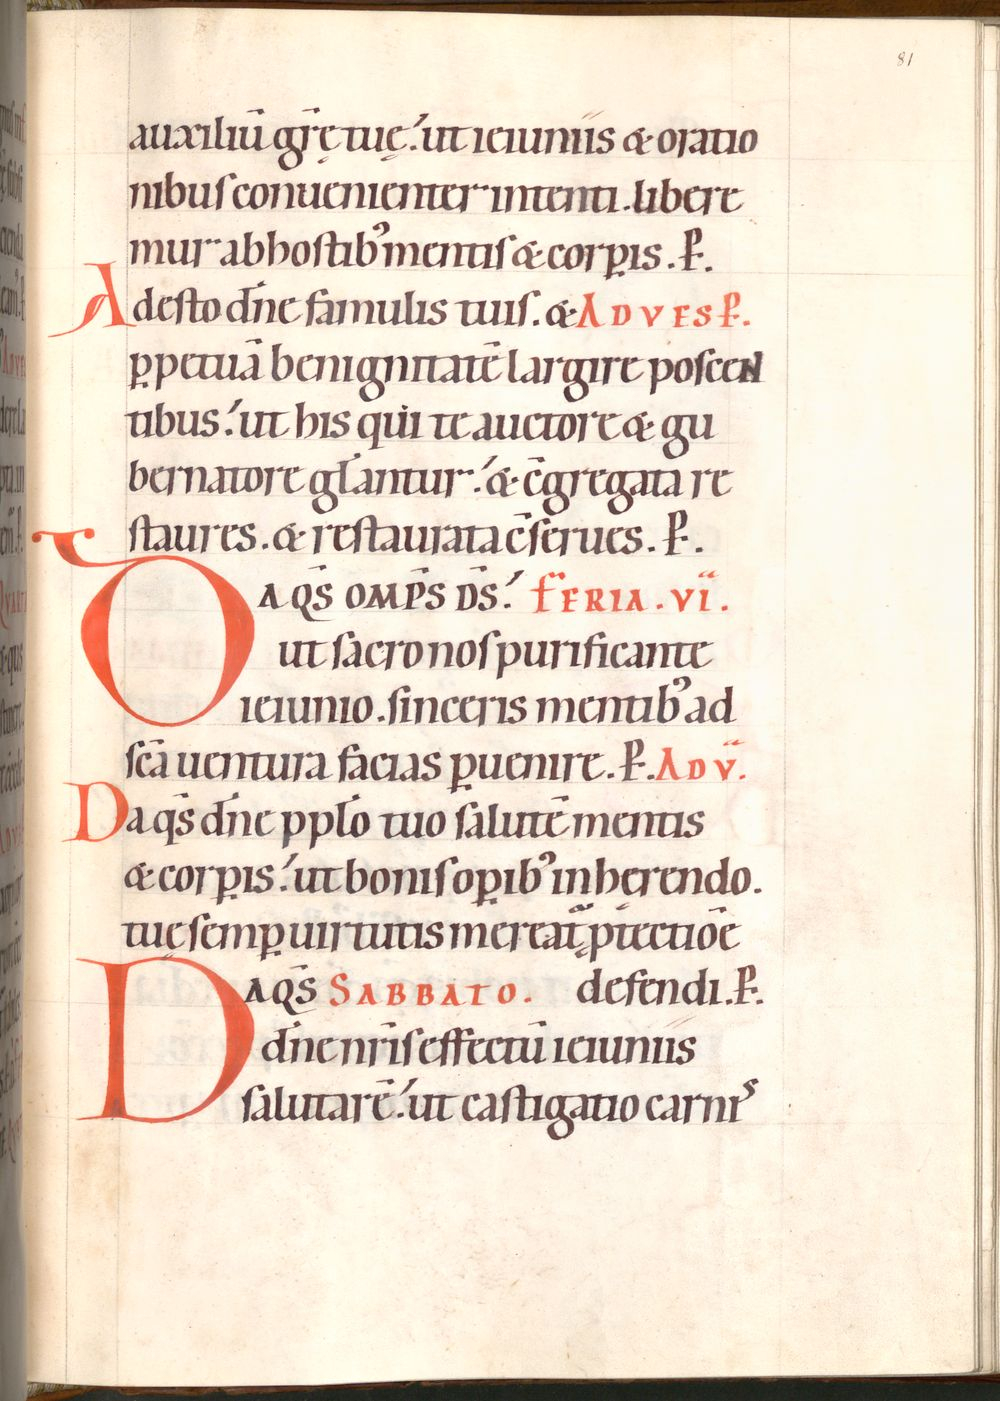 81
auxiliū gr̄ę tuę. ut ieiuniis & oratio
nibus conuenienter intenti. libere
mur ab hostibꝰ mentis & corꝑis. P̱.
Adesto dn̄e famulis tuis. & AD VESP̱.
ꝑpetuā benignitatē largire poscen
tibus. ut his qui te auctore & gu
bernatore gl̄antur. & c̄gregata re
staures. & restaurata c̄serues. P̱.
DA QS̄ OMP̄S DS̄. FERIA. VI.
ut sacro nos purificante
ieiunio. sinceris mentibꝰ ad
sc̄a uentura facias ꝑuenire. P̱. AD V̄.
Da qs̄ dn̄e ppl̄o tuo salutē mentis
& corꝑis. ut bonis oꝑibꝰ inherendo.
tuę semꝑ uirtutis mereat᷑ ꝓtectiōe
DA QS̄ SABBATO. defendi. P̱.
dn̄e nr̄is effectū ieiuniis
salutarē. ut castigatio carnis